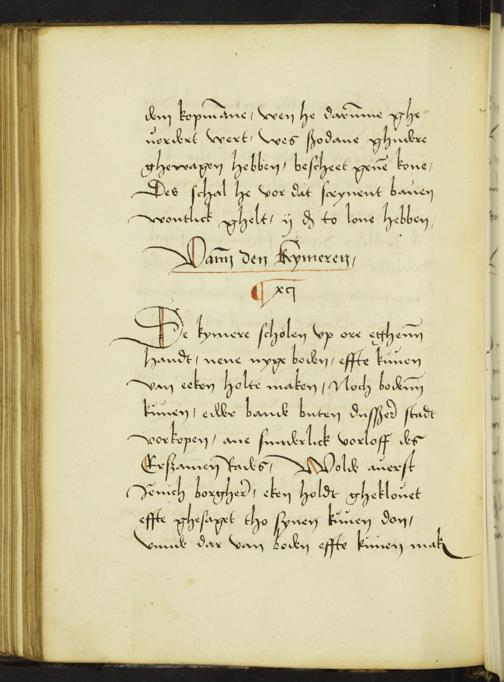 dem kopmāne, wen he darūme ghe
uordert wert, wes ßodane ghudere
ghewagen hebben, bescheet geuē kone,
Des schal he vor dat screuent bauen
wontlick ghelt, ij ₰ to lone hebben,
Vann den kymeren,
xcj
De kymere scholen vp ore eghenn
handt, nene nyge boden, effte kuuen
van eeken holte maken, Noch bodenn
kuuen, edder bande buten dusßer stadt
vorkopen, ane sunderlick vorloff des
Erszamen Rades, Wolde auerst
Jenich borgher, eken holdt gheklouet
effte ghesaget tho synen kuuen don,
vnnde dar van boden effte kuuen mak